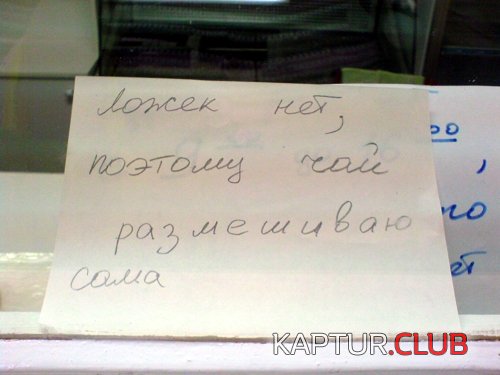 Ложек нет,
поэтому чай
размешиваю
сама
KAPTUR.CLUB